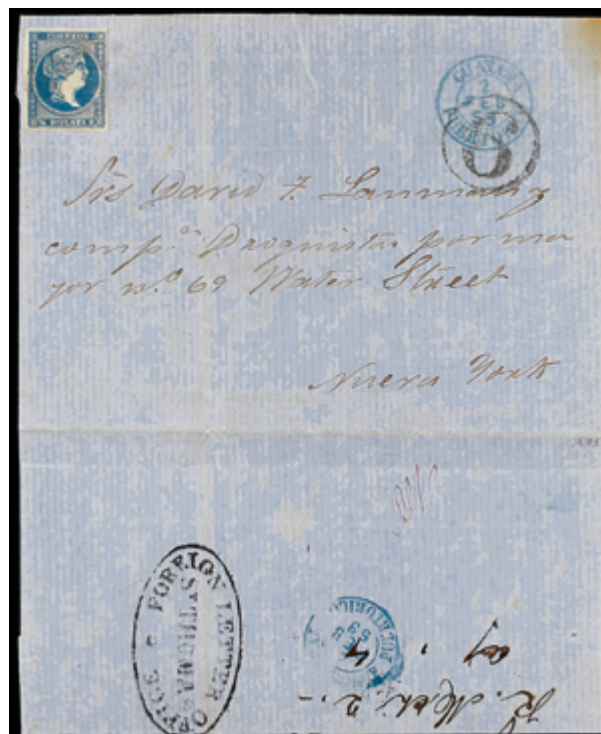 CORREOS
GUAYAMA
2
FEB
59
PUERTO RICO
Srs David T. Lanman y
comp.ª Droguistas por ma
yor n.º 69 Water Street
Nueva York
FOREIGN LETTER OFFICE
ST THOMAS
PUERTO RICO
59